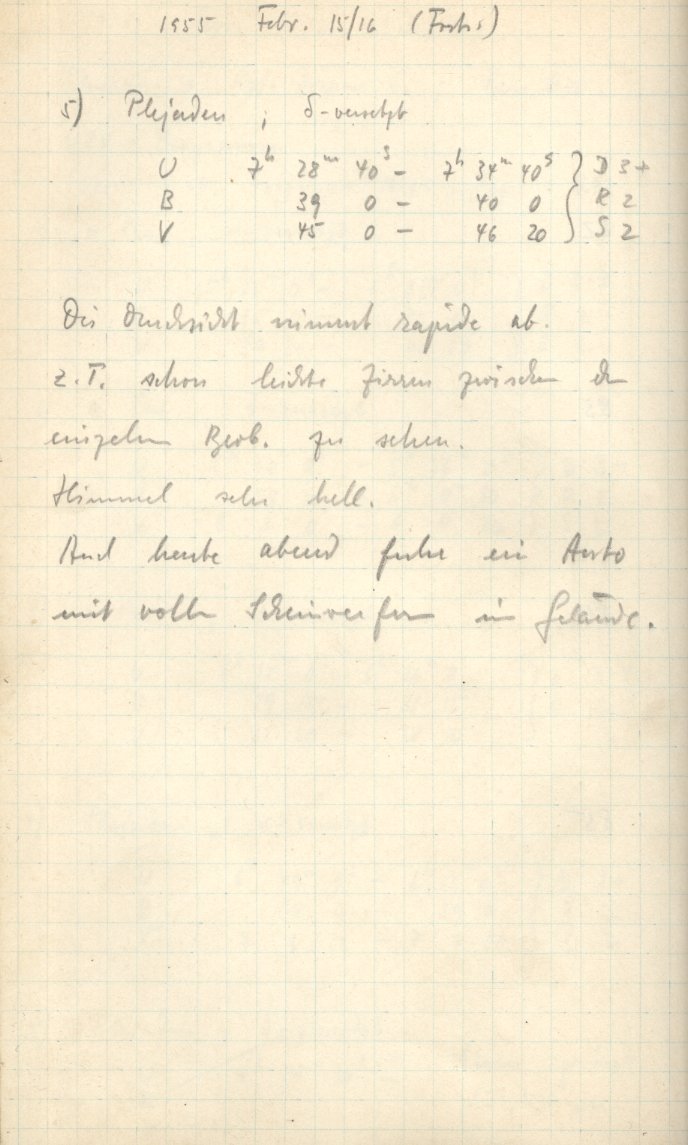 1955 Febr. 15/16 (Forts.)
5) Plejaden ; δ-versetzt
U 7h 28m 40s – 7h 34m 40s } D 3+
B 39 0 – 40 0 } R 2
V 45 0 – 46 20 } S 2
Die Durchsicht nimmt rapide ab.
z.T. schon leichte Zirren zwischen den
einzelnen Beob. zu sehen.
Himmel sehr hell.
Auch heute abend fuhr ein Auto
mit vollen Scheinwerfern im Gelände.